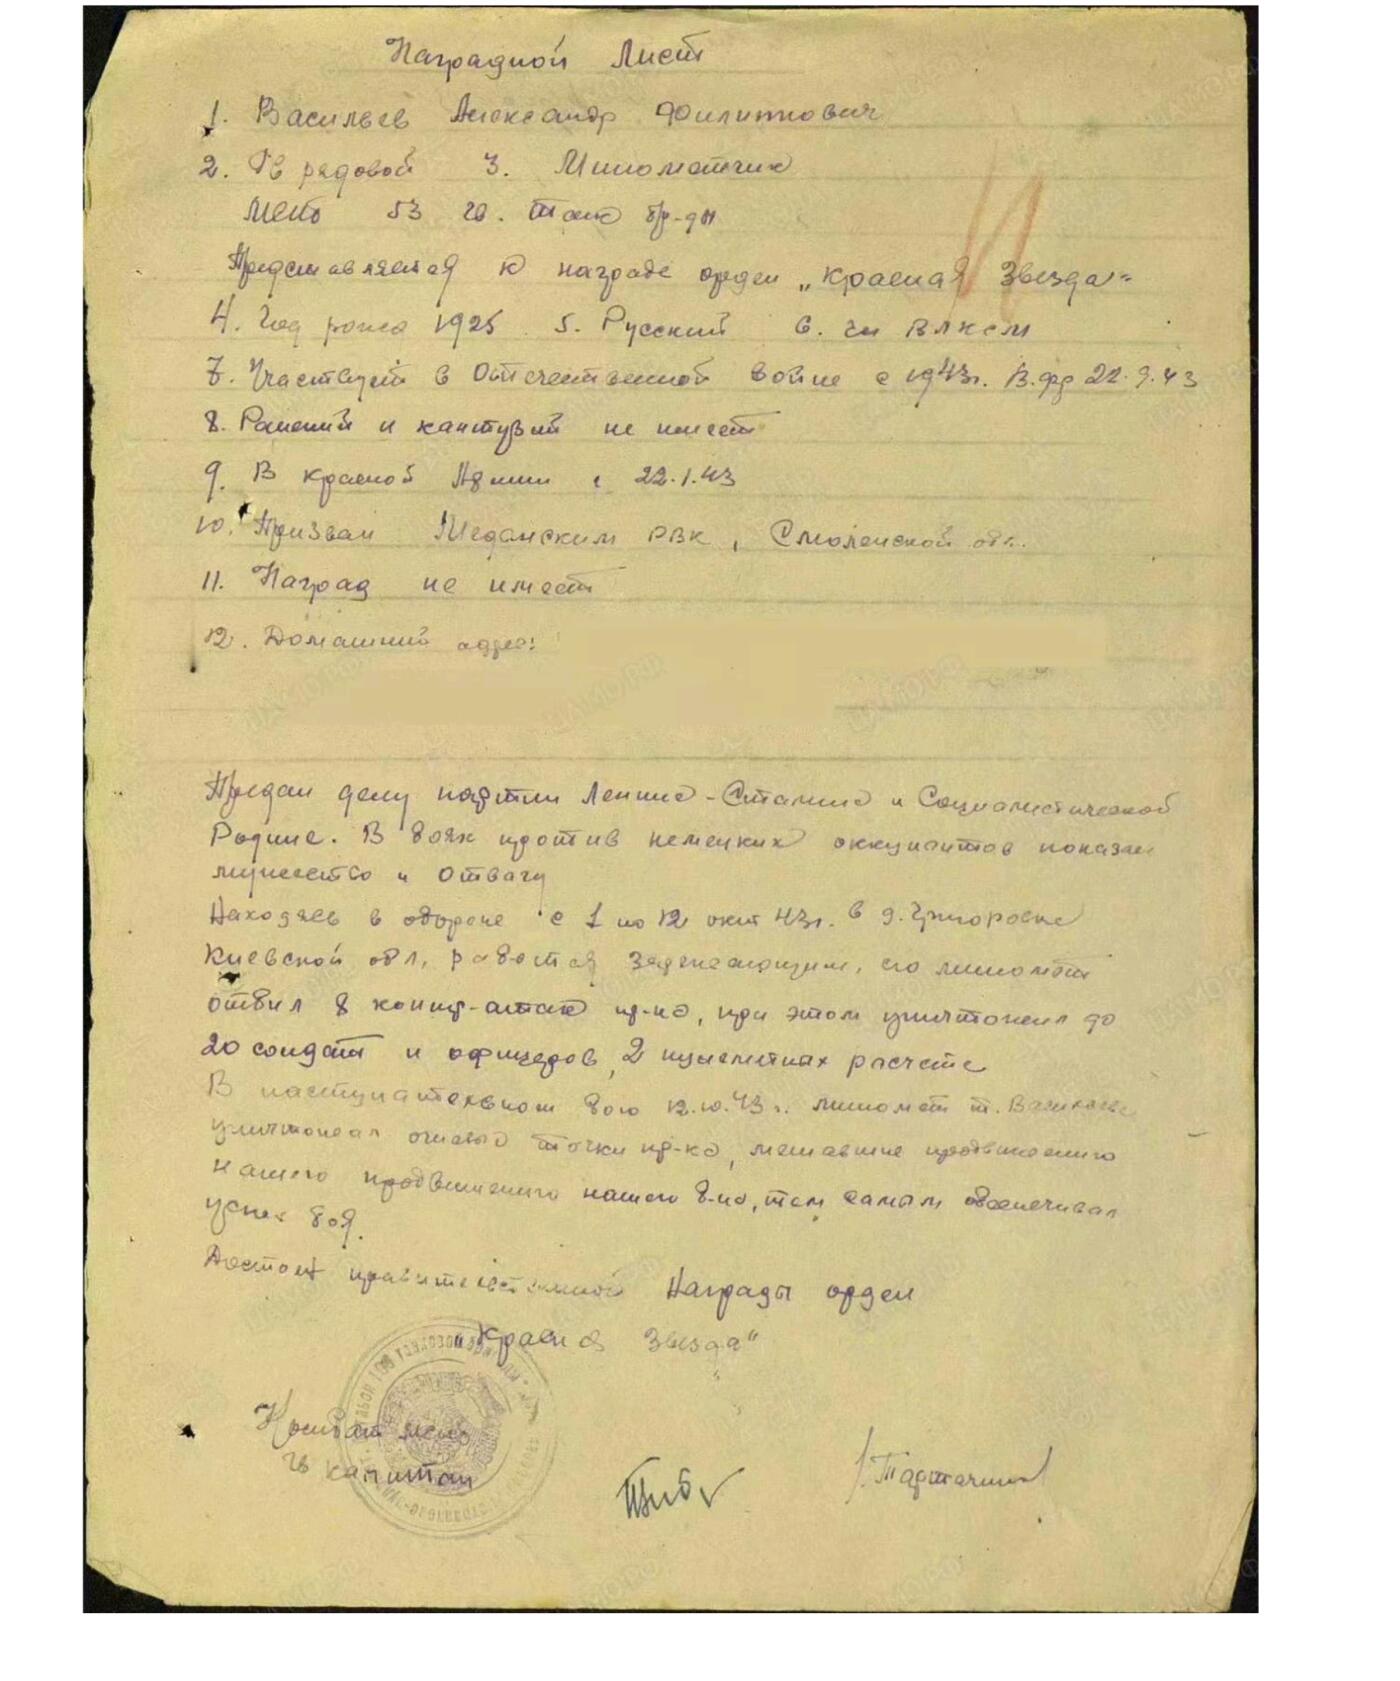 Наградной Лист
1. Васильев Александр Филиппович
2. Гв рядовой 3. Минометчик
МСПБ 53 гв. Танк бр-ды
Представляется к награде орден „Красная Звезда"
4. Год рожд 1925 5. Русский 6. Чл ВЛКСМ
7. Участвует в Отечественной войне с 1943г. В. фр 22.9.43
8. Ранений и кантузий не имеет
9. В Красной Армии с 22.1.43
10. Призван РВК, Смоленской обл.
11. Наград не имеет
12. Домашний адрес:
Предан делу партии Ленина-Сталина и Социалистической
Родине. В боях против немецких оккупантов показал
мужество и отвагу
Находясь в обороне с 1 по 12 окт 43г. в д.
Киевской обл, работая его миномет
отбил 8 контр-атак пр-ка, при этом уничтожил до
20 солдат и офицеров, 2 пулеметных расчета
В наступательном бою 12.10.43г. миномет т. Васильева
уничтожал огневые точки пр-ка, мешавшие продвижению
нашего продвижению нашего б-на, тем самым обеспечивал
успех боя.
Достоин правительственной Награды орден
„Красная Звезда"
Комбат МСПБ
гв капитан